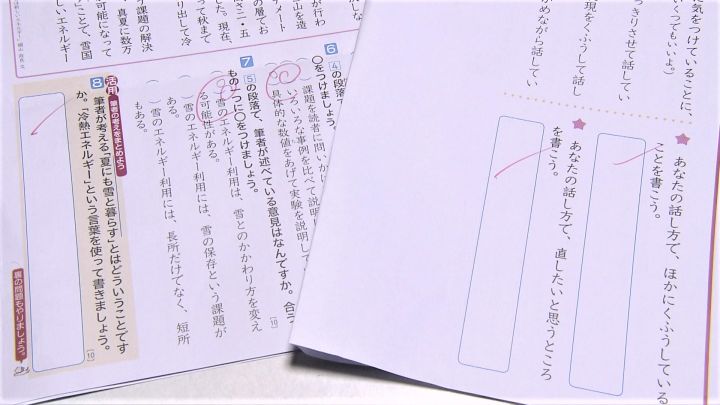 に気をつけていることに、
くってもいいよ。）
っきりさせて話してい
現をくふうして話し
かめながら話してい
あなたの話し方で、ほかにくふうしている
ことを書こう。
あなたの話し方で、直したいと思うところ
を書こう。
6 4の段落で、
○をつけましょう。
課題を読者に問いか
いろいろな事例を比べて説明し
具体的な数値をあげて実験を説明して
7 5の段落で、筆者が述べている意見はなんですか。合う
もの一つに○をつけましょう。
雪のエネルギー利用は、雪とのかかわり方を変え
る可能性がある。
雪のエネルギー利用には、雪の保存という課題が
ある。
雪のエネルギー利用には、長所だけでなく、短所
もある。
活用 筆者の考えをまとめよう
8 筆者が考える「夏にも雪と暮らす」とはどういうことです
か。「冷熱エネルギー」という言葉を使って書きましょう。
裏の問題もやりましょう。